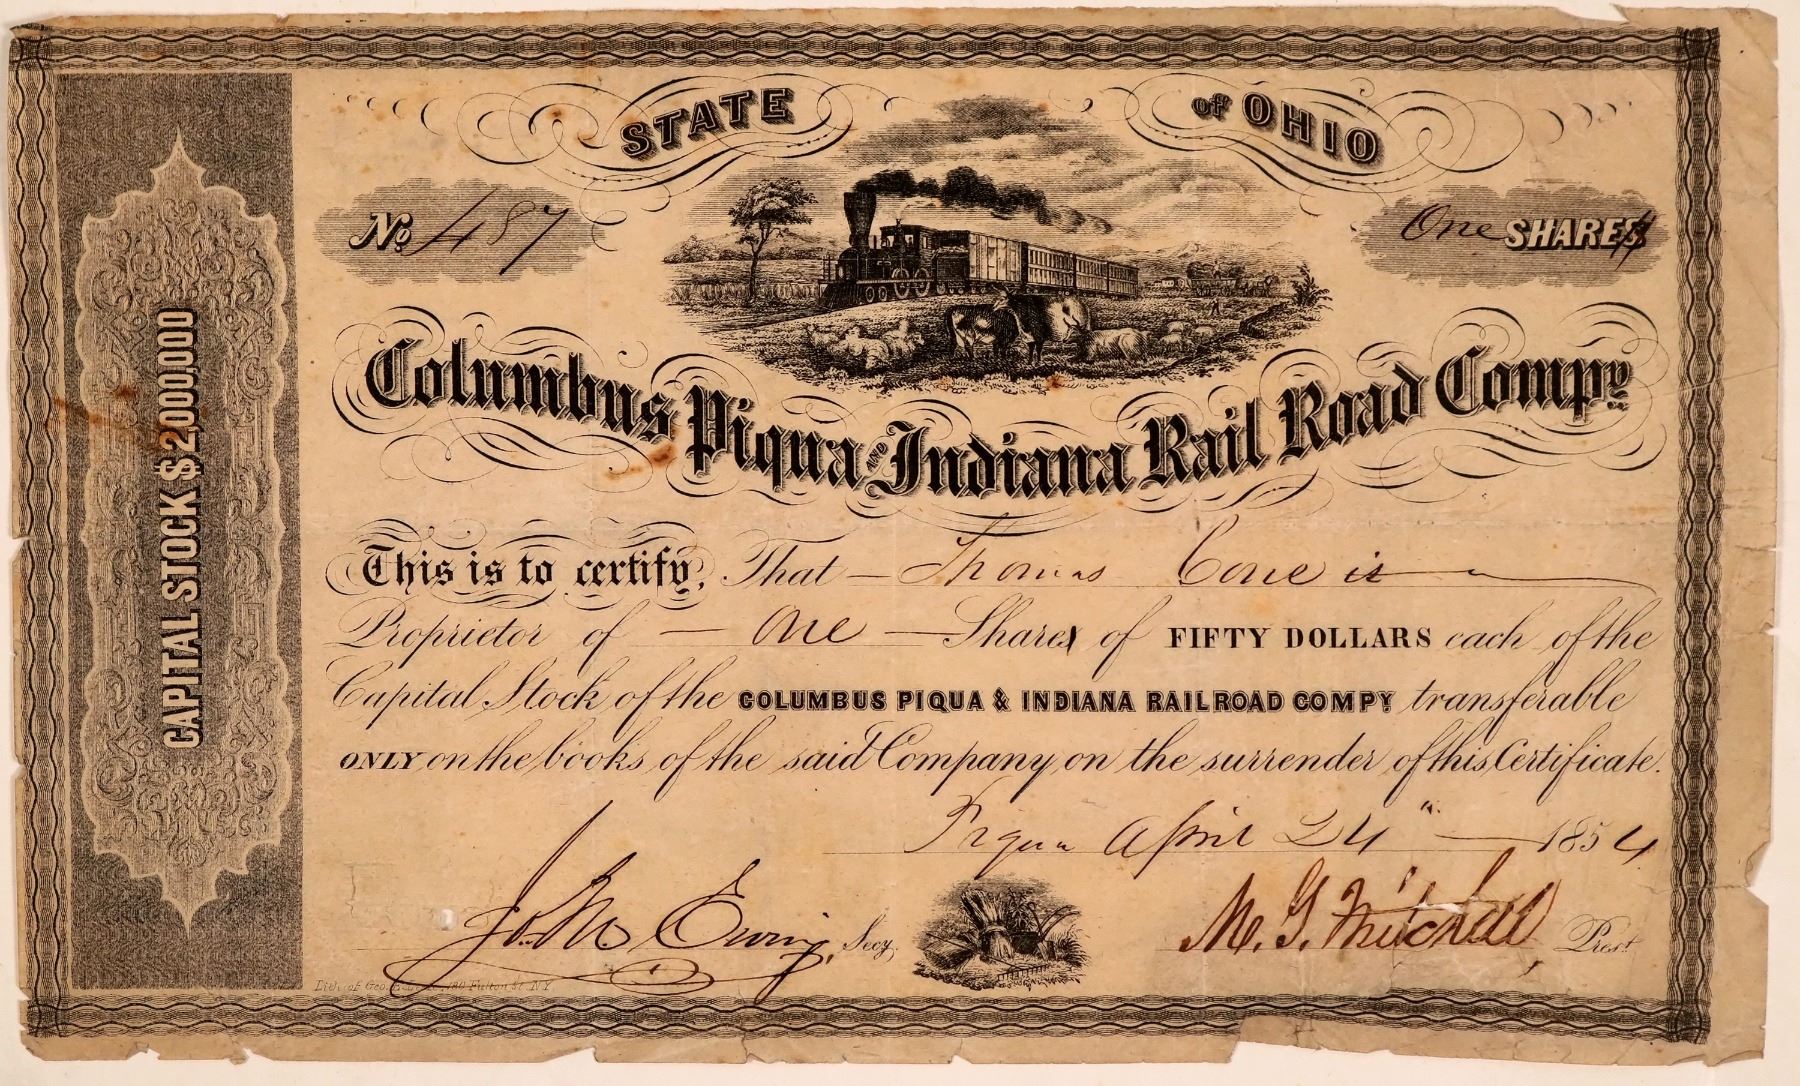 STATE of OHIO
No. 487
One SHARES
Columbus Piqua AND Indiana Rail Road Compy.
CAPITAL STOCK $2,000,000
This is to certify, That — Thomas Cone is
Proprietor of — One — Shares of FIFTY DOLLARS each of the
Capital Stock of the COLUMBUS PIQUA & INDIANA RAILROAD COMPY transferable
ONLY on the books of the said Company on the surrender of this Certificate.
Piqua April 24th — 1854
Jno. M. Ewing, Secy.
M. G. Mitchell Prest.
Lith. of Geo. 180 Fulton St. N.Y.